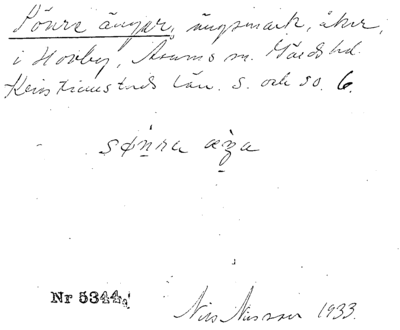 Sönre ängar, ängsmark, åker,
i Hovby, Åsums sn. Gärds hd.
Kristianstads län. S. och so. 6.
sønra æŋa
Nr 5344a
Nils Nilsson 1933.